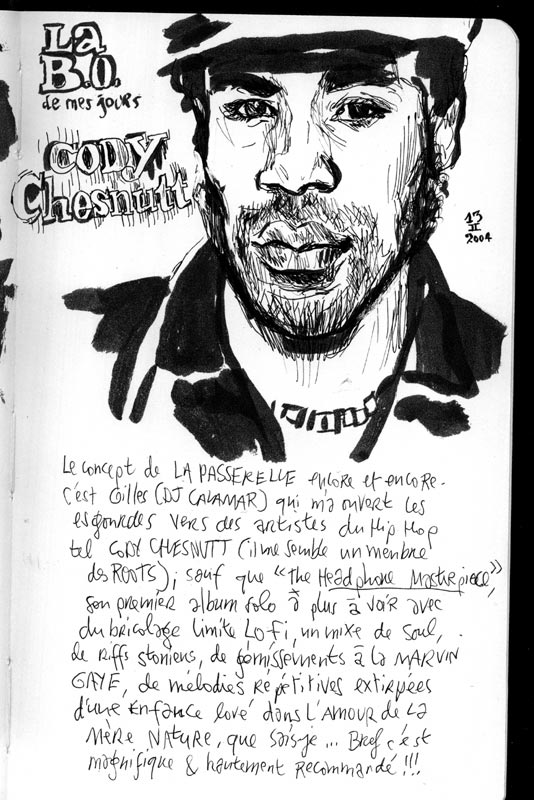 La
B.O.
de mes jours
CODY
Chesnutt
13
II
2004
Le concept de LA PASSERELLE encore et encore.
C'est Gilles (DJ CALAMAR) qui m'a ouvert les
esgourdes vers des artistes du Hip Hop
tel CODY CHESNUTT (il me semble un membre
des ROOTS); sauf que "The Headphone Masterpiece",
son premier album solo à plus à voir avec
du bricolage limite Lo-Fi, un mixe de Soul,
de riffs stoniens, de gémissements à la MARVIN
GAYE, de mélodies répétitives extirpées
d'une Enfance lové dans L'AMOUR de la
Mère NATURE, que sais-je ... Bref c'est
magnifique & hautement Recommandé !!!